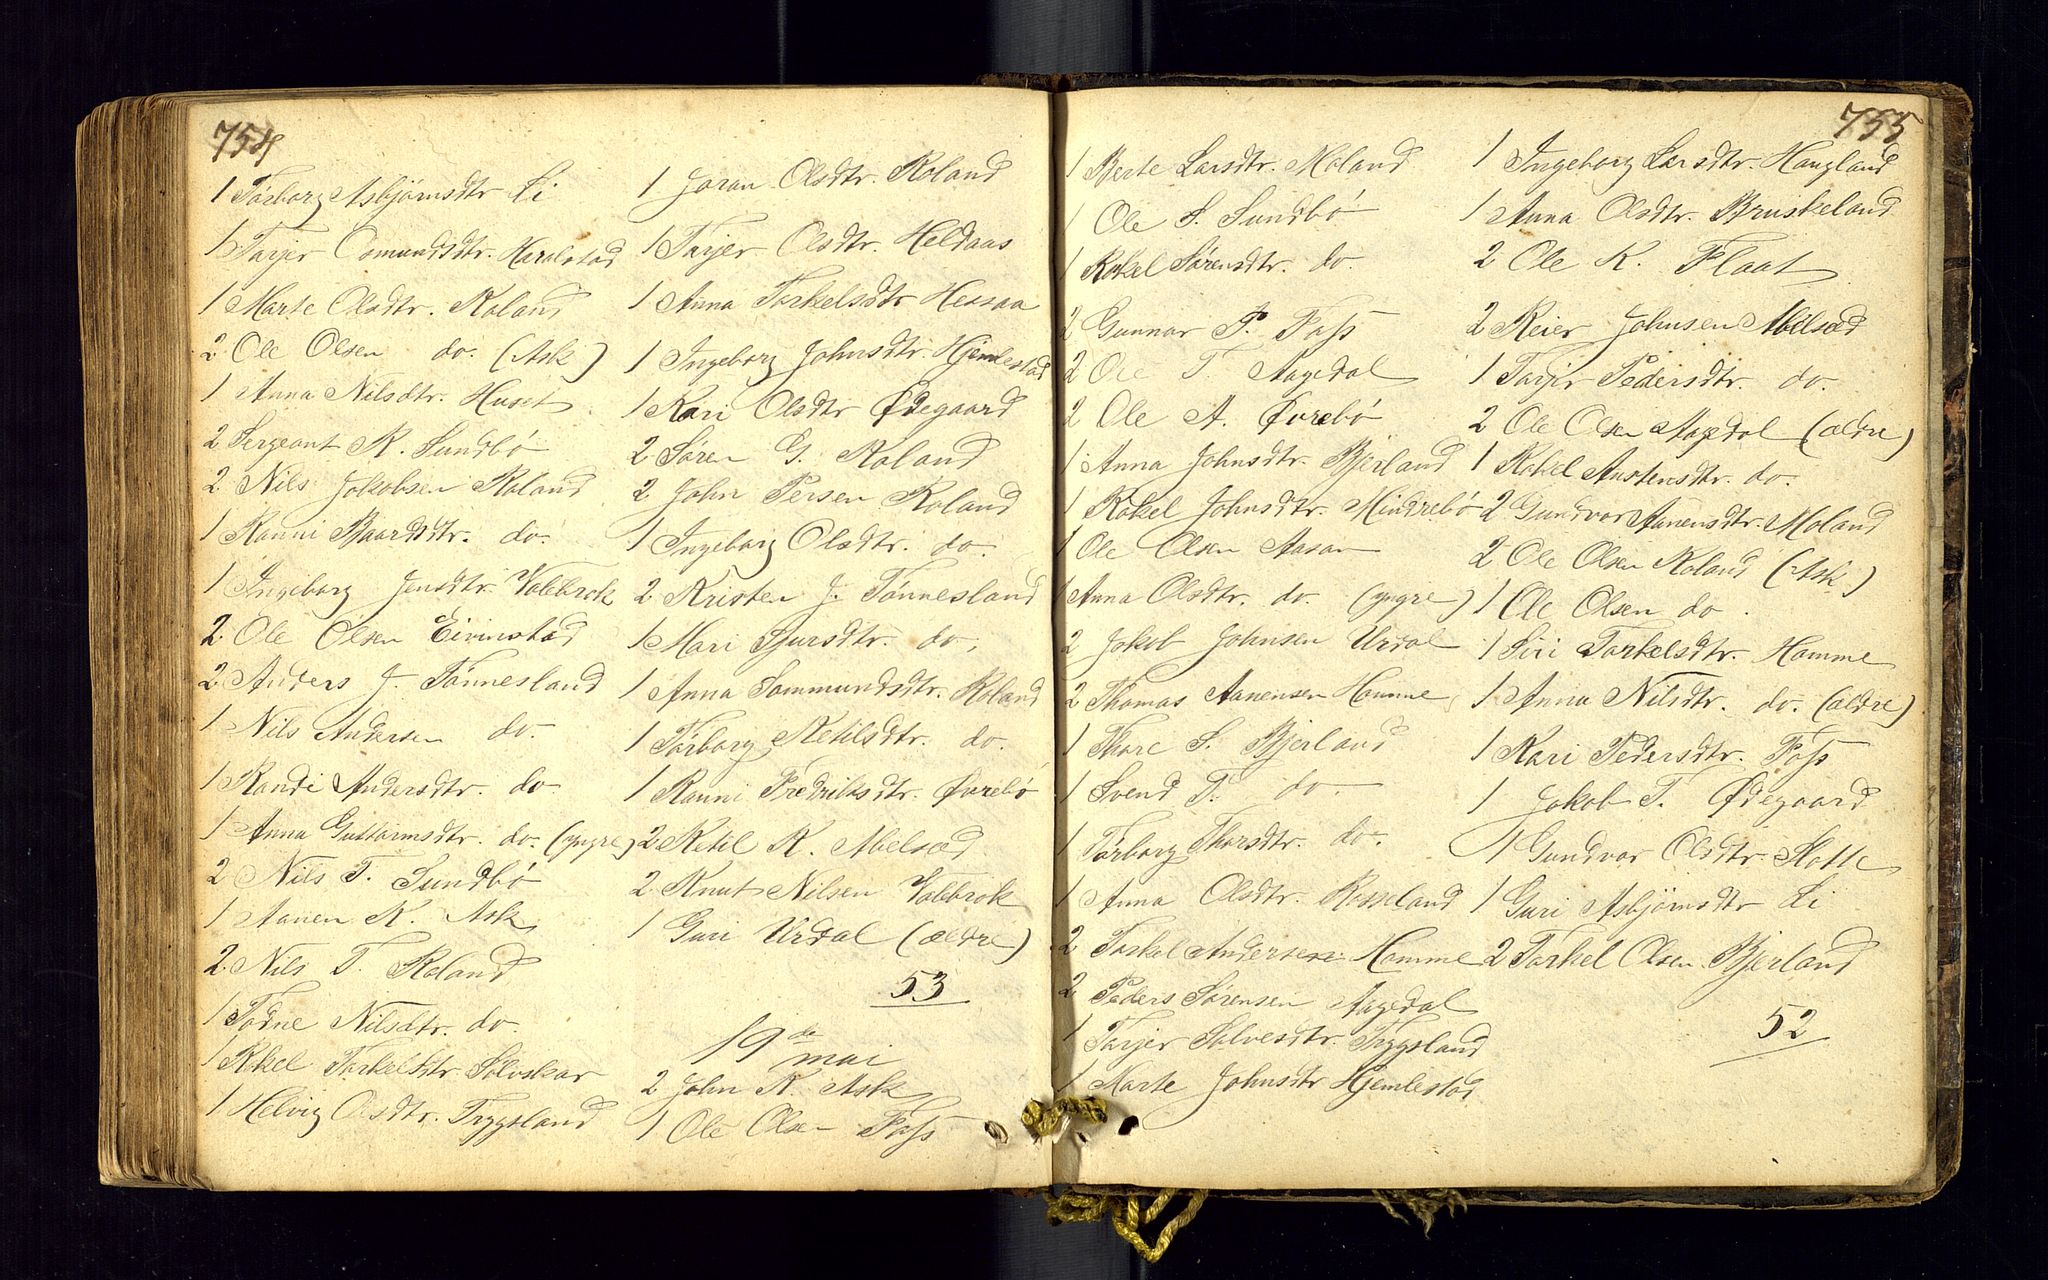 754
1 Tørborg Asbjørnsdtr Li
1 Tarjer Osmundsdtr. Haralstad
1 Marte Olsdtr. Roland
2 Ole Olsen do. (Ask)
1 Anna Nilsdtr. Huset
2 Sergeant K. Sundbö
2 Nils Jakobsen Roland
1 Ranni Baardsdtr. do.
1 Ingeborg Jensdtr. Valebrok
2 Ole Olsen Eivinstad
2 Anders J. Tønnesland
1 Nils Andersen do.
1 Randi Andersdtr. do
1 Anna Guttormsdtr. do. (yngre)
2 Nils T. Sundbö
1 Aanen K. Ask
2 Nils T. Roland
1 Todne Nilsdtr. do.
1 Rkel Torkelsdtr. Sølvskar
1 Helvig Olsdtr. Tryggsland
1 Joran Olsdtr. Roland
1 Tarjer Olsdtr. Heldaas
1 Anna Torkelsdtr Hessaa
1 Ingeborg Johnsdtr. Hjemlestad
1 Kari Olsdtr Ødegaard
2 Søren G. Roland
2 John Persen Roland
1 Ingeborg Olsdtr. do.
2 Kristen J. Tønnesland
1 Mari Sjursdtr. do,
1 Anna Sammundsdtr. Roland
1 Tørborg Ketilsdtr. do.
1 Ranni Fredriksdtr. Øvrebö
2 Ketil K. Abelsæd
2 Knut Nilsen Valebrok
1 Guri Urdal (ældre)
53
19de mai
2 John K. Ask
1 Ole Olsen Foss
755
1 Berte Larsdtr. Moland
1 Ole S. Sundbö
1 Rakel Sørensdtr. do.
2 Gunnar P. Foss
2 Ole T. Aagedal
2 Ole A. Øvrebö
1 Anna Johnsdtr. Bjerland
1 Rakel Johnsdtr. Mindrebö
1 Ole Olsen Aasan
1 Anna Olsdtr. do. (yngre)
2 Jakob Johnsen Urdal
2 Thomas Aanensen Homme
1 Thore S. Bjerland
1 Svend T. do.
1 Tørborg Thorsdtr. do.
1 Anna Olsdtr. Rosseland
2 Torkel Andersen Homme
2 Peders Sørensen Aagedal
1 Tarjer Salvesdtr. Tryggsland
1 Marte Johnsdtr Hjemlestad
1 Ingeborg Larsdtr. Haugland
1 Anna Olsdtr. Bruskeland
2 Ole K. Flaat
2 Reier Johnsen Abelsæd
1 Tarjer Pedersdtr. do.
2 Ole Olsen Aagedal (ældre)
1 Rakel Austensdtr. do.
2 Gundvor Aanensdtr. Moland
2 Ole Olsen Roland (Ask.)
1 Ole Olsen do.
1 Siri Torkelsdtr. Homme
1 Anna Nilsdtr. do. (ældre)
1 Kari Pedersdtr. Foss
1 Jakob T. Ødegaard
1 Gundvor Olsdtr. Stolte
1 Guri Asbjørnsdtr Li
2 Torkel Olsen Bjerland
52